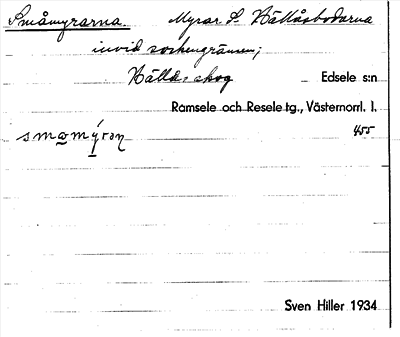 Småmyrarna. Myrar S. Hällåsbodarna
invid sockengränsen;
Hälla skog Edsele s:n
Ramsele och Resele tg., Västernorrl. l.
smo̲mýran 455
Sven Hiller 1934